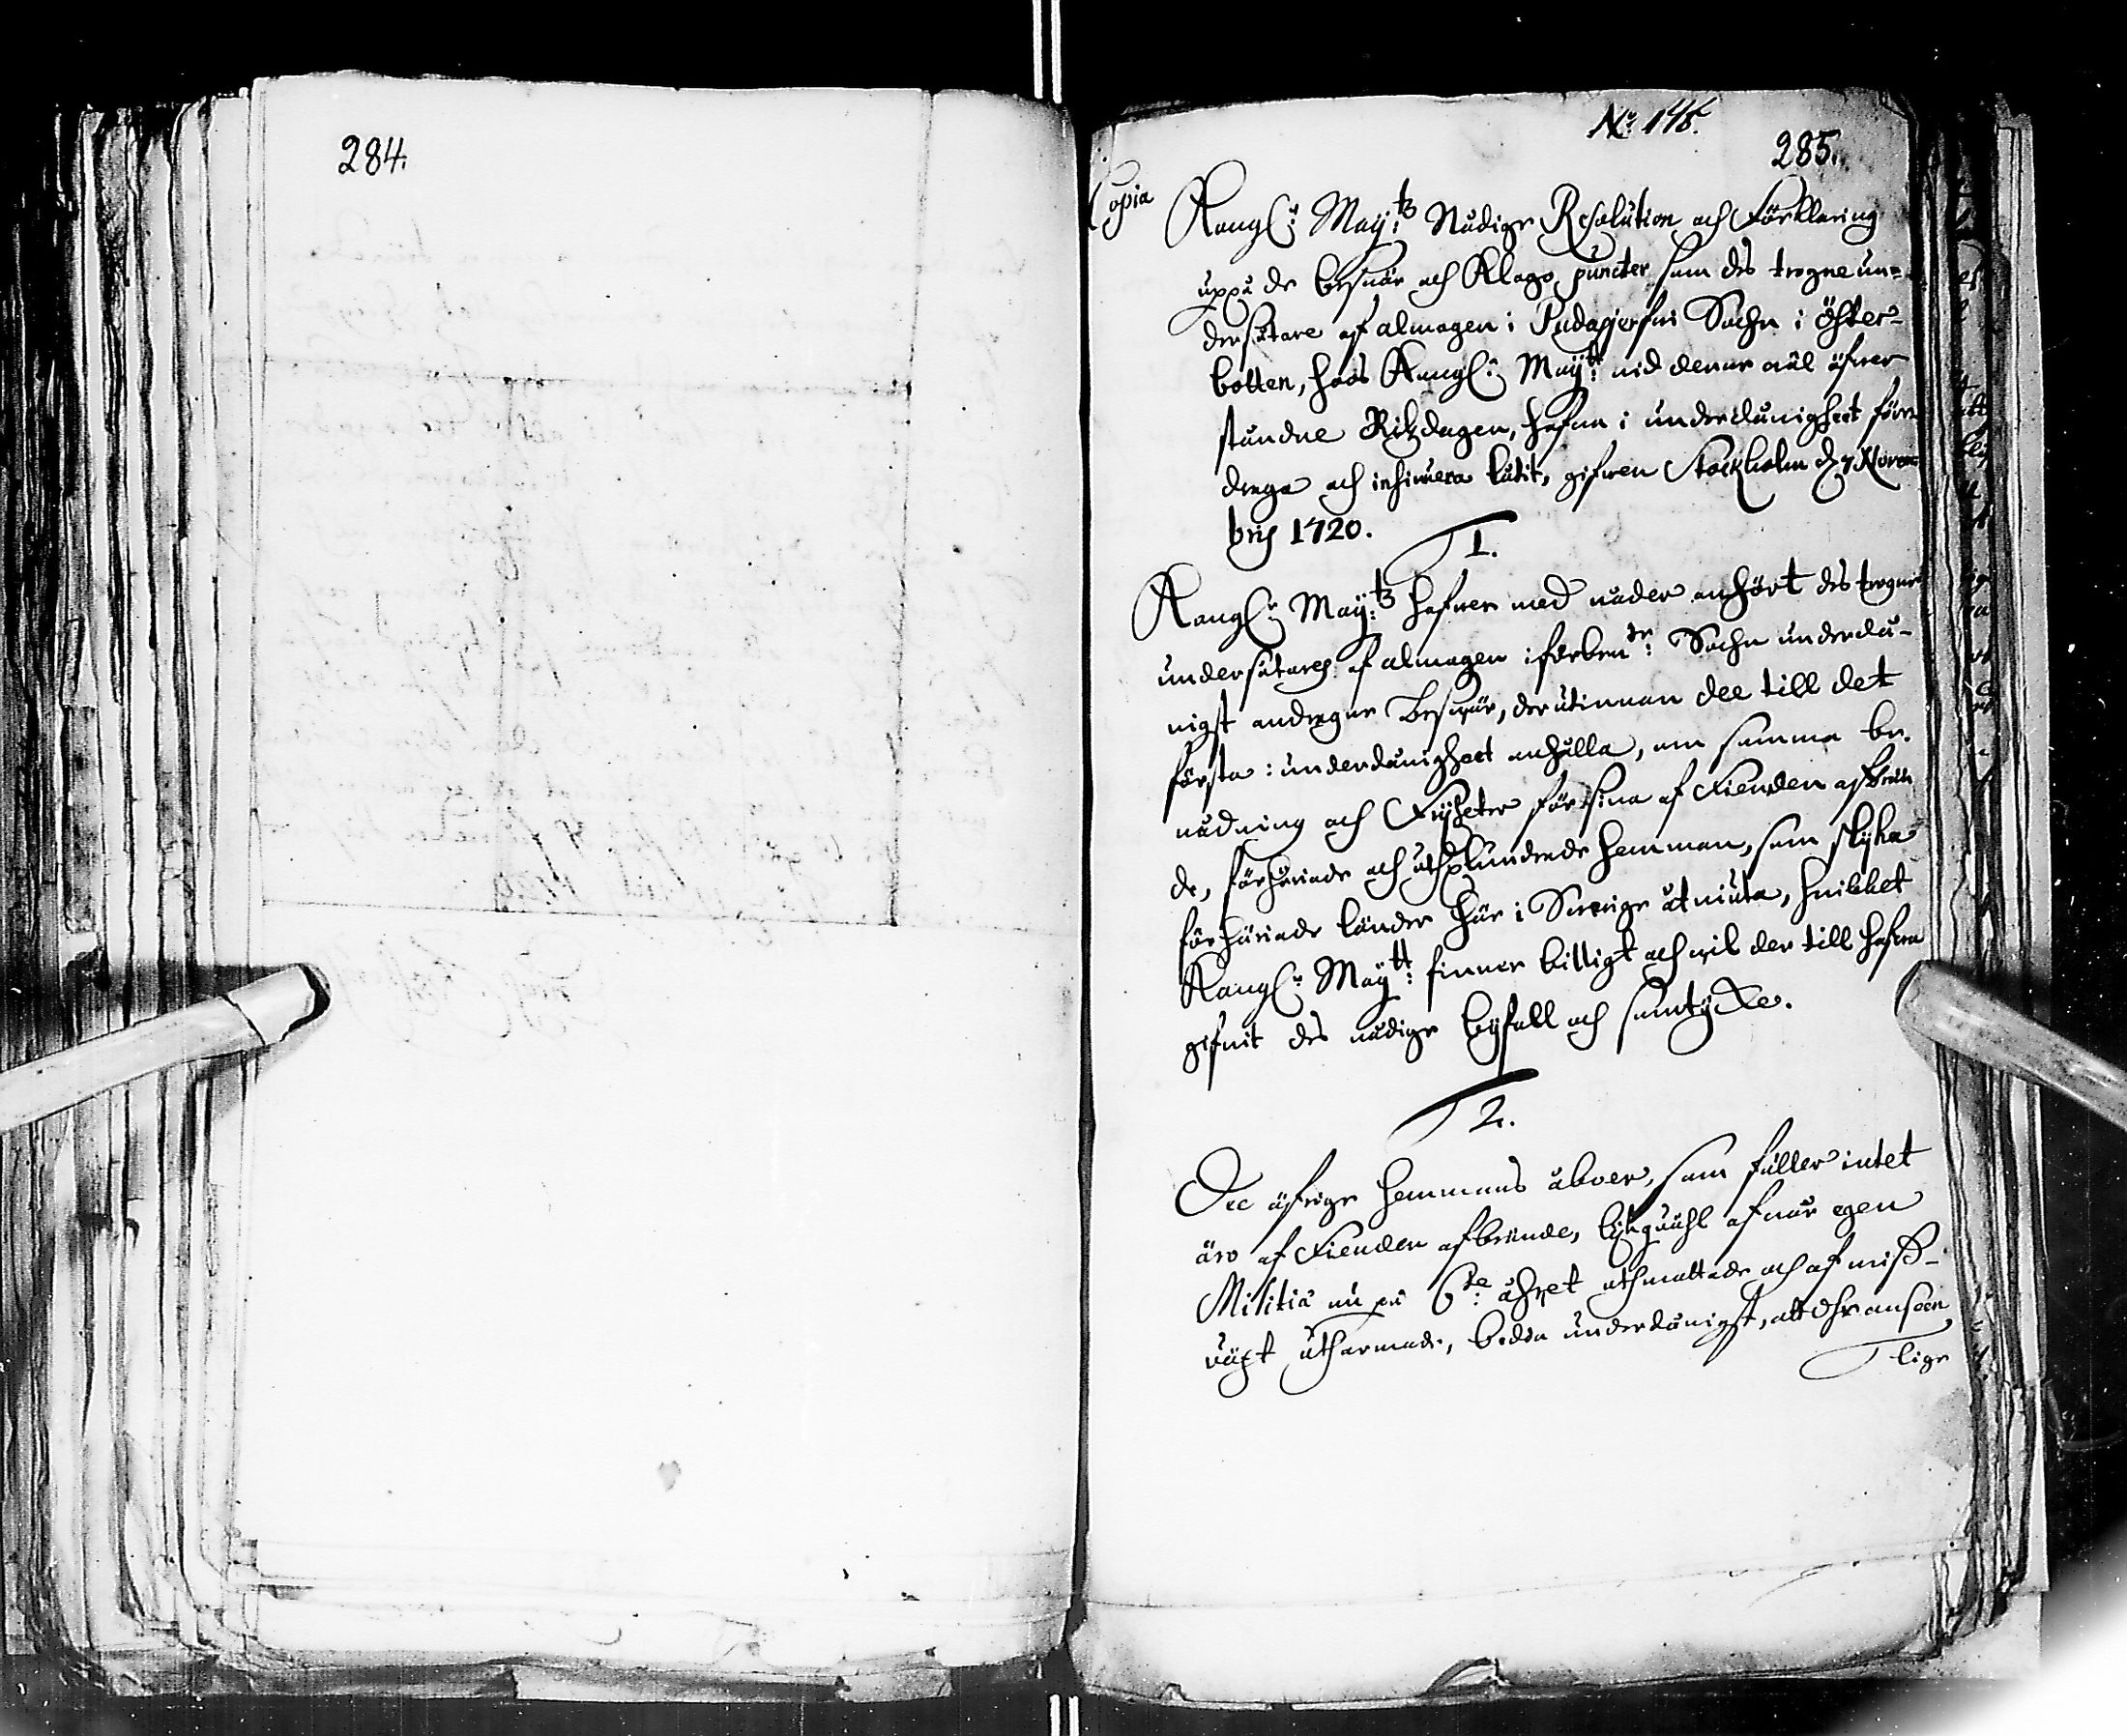 284.
No: 148.
285.
Copia
Kongl: Maÿ:tz Nådige Resolution och Förklaring
uppå de besvär och Klago puncter som des trogne un-
dersåtare af almogen i Pudasjerfvi Sochn i Öster-
botten, hoos Kongl: Maÿ:tt vid denne nu öfver
stundne Rikzdagen, hafva i underdånigheet före
draga och insinuera låtit, gifven Stockholm d. 7 Novem-
bris 1720.
1.
Kongl: Maÿ:tz hafver med nåder anhört des trogne
undersåtares af almogen i förben:de Sochn underdå-
nigst andragne Besvär, derutinnan dee till det
första i underdånigheet anhålla, om samma be-
nådning och Frijheter för sina af Fienden afbrän-
de, förhäriade och uthplundrade hemman, som slijka
förhäriade länder här i Sverige åtniuta, hvilket
Kongl: Maÿ:tt finner billigt och vil der till hafva
gifvit des nådige bijfall och samtycke.
2.
Dee öfrige hemmans åboer, som fuller intet
äro af Fienden afbrände, lijkquähl af vår egen
Militia nu på 6:te åhret uthmattade och af miss-
växt utharmade, bedia underdånigst, att dhe anseen
lige